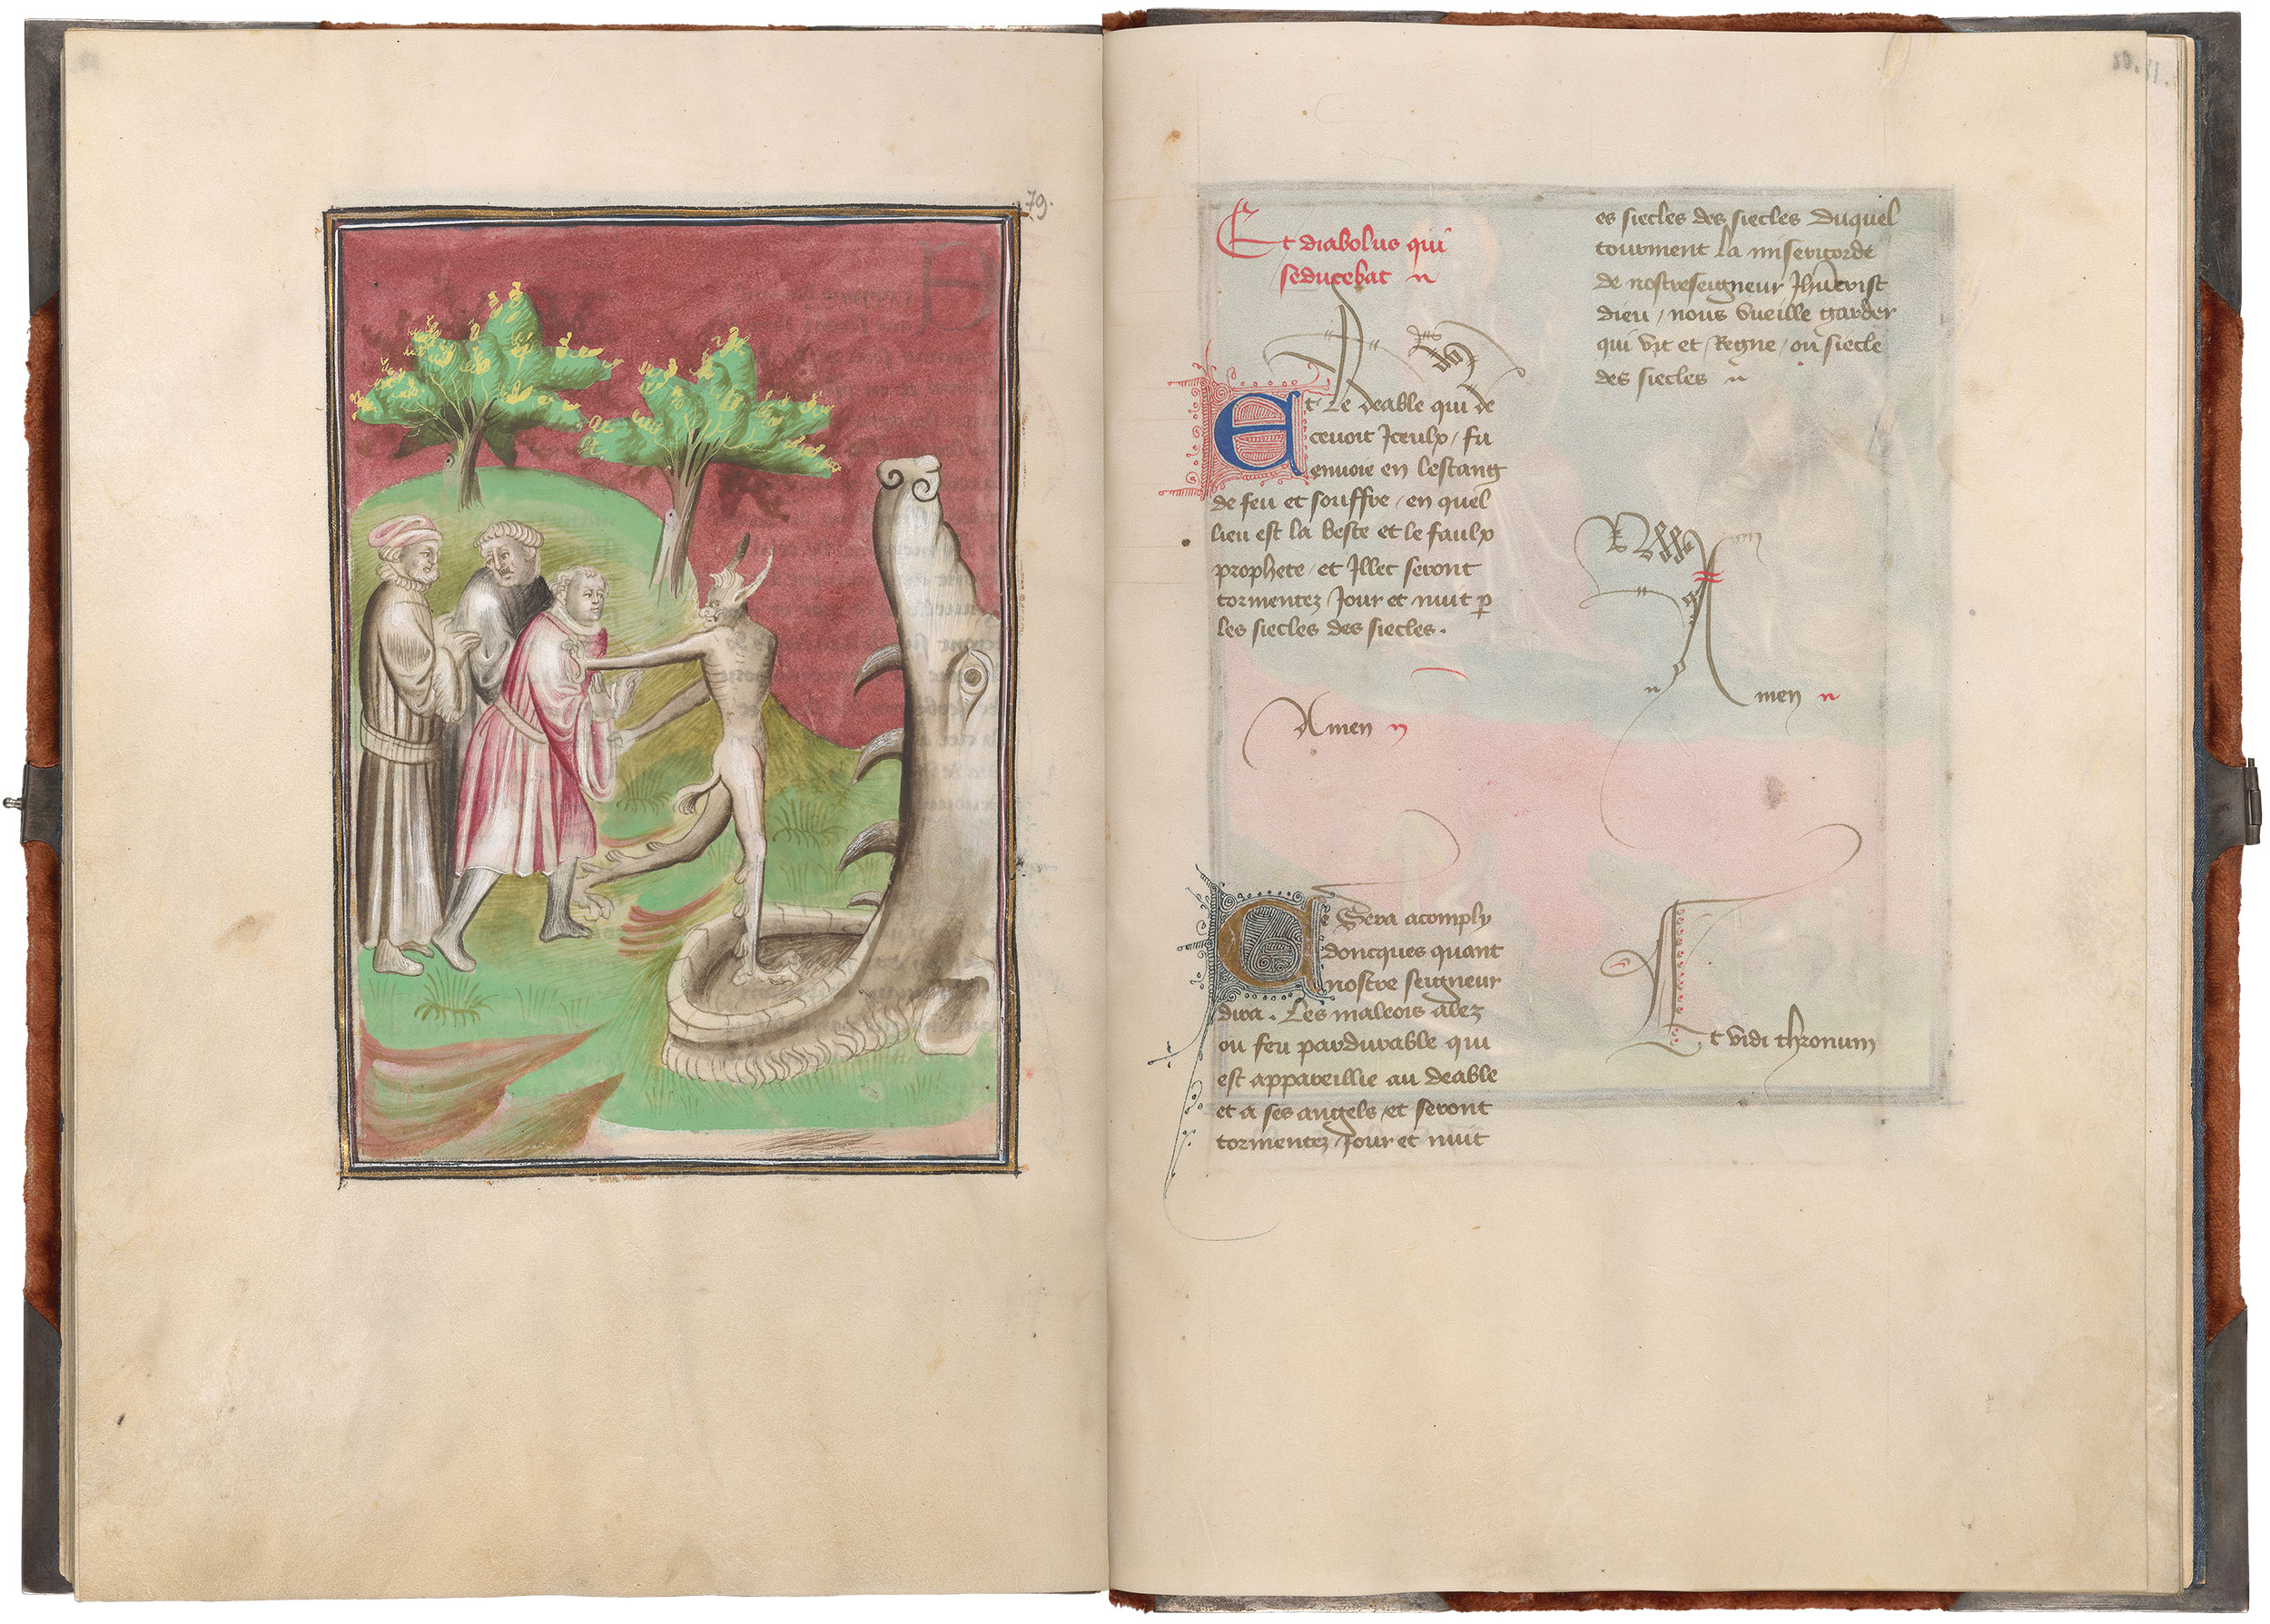 79.
Et diabolus qui
seducebat
Et Le deable qui de
cevoit Iceulx / fu
envoie en lestang
de feu et souffre / en quel
lieu est la beste et le faulx
prophete / et Illec seront
tormentez Jour et nuit p
les siecles des siecles .
Amen
Ce Sera acomply
doncques quant
nostre seigneur
dira . Les maleois alez
ou feu pardurable qui
est appareillie au deable
et a ses angels et seront
tormentez Jour et nuit
es siecles des siecles Duquel
tourment La misericorde
de nostreseigneur Jhucrist
dieu / nous vueille garder
qui vit et Regne / ou siecle
des siecles
Amen
Et vidi thronum